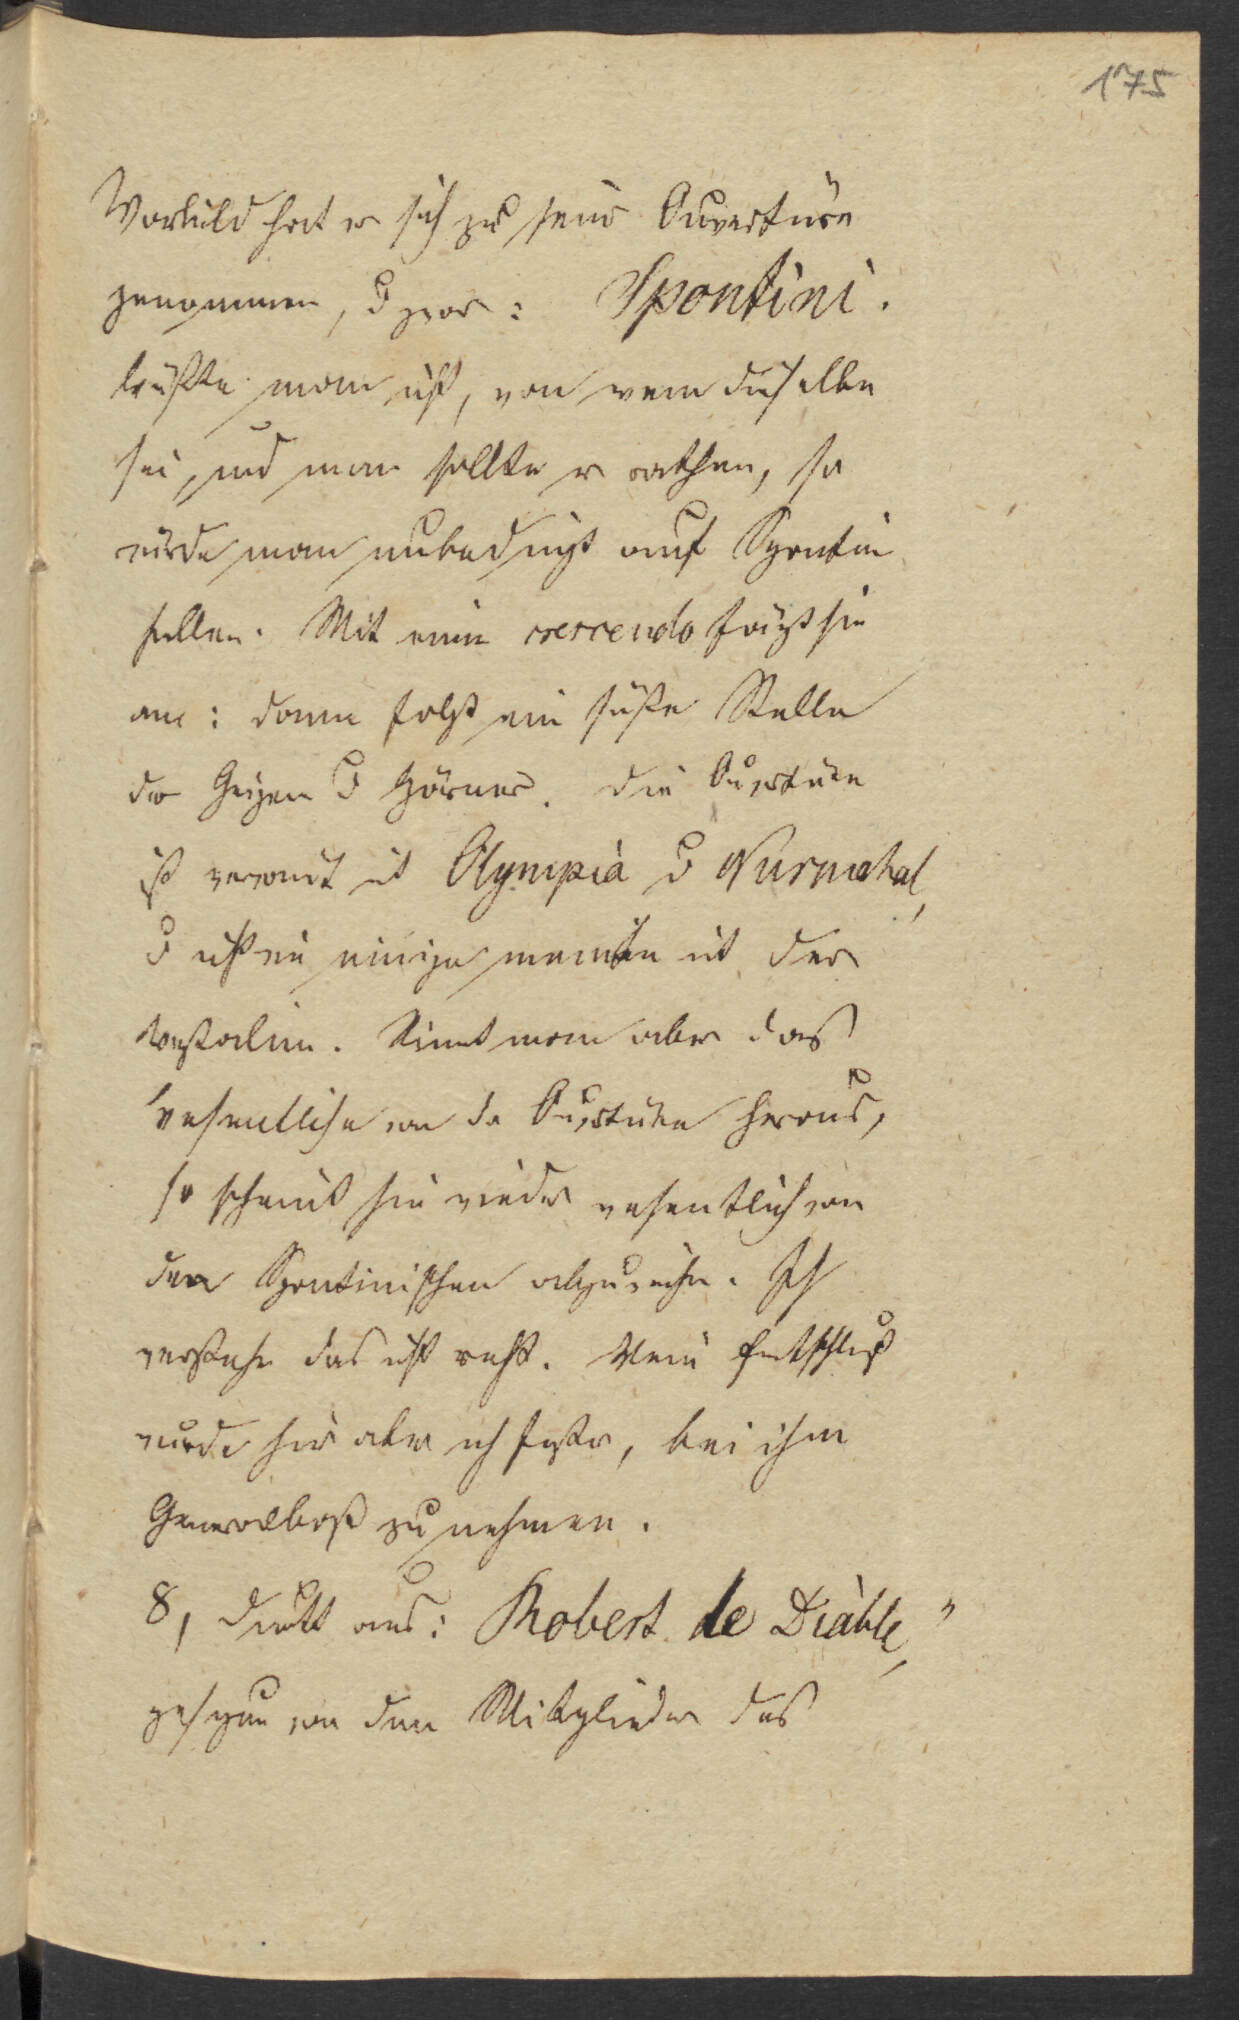 175
Vorbild hat er sich zu seiner Ouvertüre
genommen, u zwar: Spontini.
Wüßte man nicht, von wem dieselbe
sei, und man sollte es rathen, so
würde man unbedingt auf Spontini
fallen. Mit einem crescendo fängt sie
an: dann folgt eine süße Stelle
der Geigen u Hörner. Die Ouvertüre
ist verwandt mit Olympia u Nurmahal,
u nicht wie einige meinten mit der
Vestalin. Nimmt man aber das
wesentliche von der Ouvertüre heraus,
so scheint sie wieder wesentlich von
den Spontinischen abzuweichen. Ich
verstehe das nicht recht. Mein Entschluß
wurde hier aber noch fester, bei ihm
Generalbaß zu nehmen.
8, Duett aus: Robert le Diable,"
gesungen von den Mitgliedern des